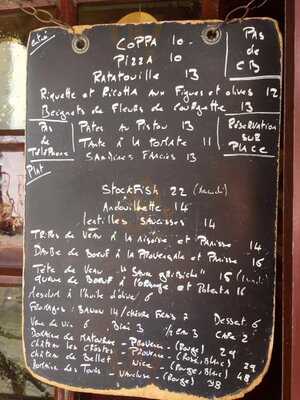 entrée
COPPA 10 -
PIZZA 10
RATATOUILLE 13
PAS
de
CB
RIQUETTE et RICOTTA AUX FIGUES et OLIVES 12
BEIGNETS de FLEURS de COURGETTE 13
PAS
de
TELEPHONE
PATES AU PISTOU 13
TARTE À LA TOMATE 11
SARDINES FARCIES 13
RÉSERVATION
SUR
PLACE
Plat
STOCKFISH 22
ANDOUILLETTE 14
LENTILLES SAUCISSES 14
TRIPES de VEAU À LA NIÇOISE et PANISSE 14
DAUBE de BOEUF À LA PROVENÇALE et PANISSE 16
TÊTE de VEAU "SAUCE GRIBICHE" 15
QUEUE de BOEUF À L'ORANGE et POLENTA 16
MESCLUN À L'HUILE d'OLIVE 6
FROMAGES: BANON 14 / CHÈVRE FRAIS 7 DESSERT 6
VERRE de VIN 6 BIÈRE 3 CAFÉ 2
DOMAINE de - PROVENCE - (ROUGE) 29
CHÂTEAU LES CROSTES - PROVENCE - (ROSÉ, BLANC) 29
CHÂTEAU de BELLET - NICE - (ROUGE, BLANC) 48
DOMAINE - VAUCLUSE - (ROUGE) 38